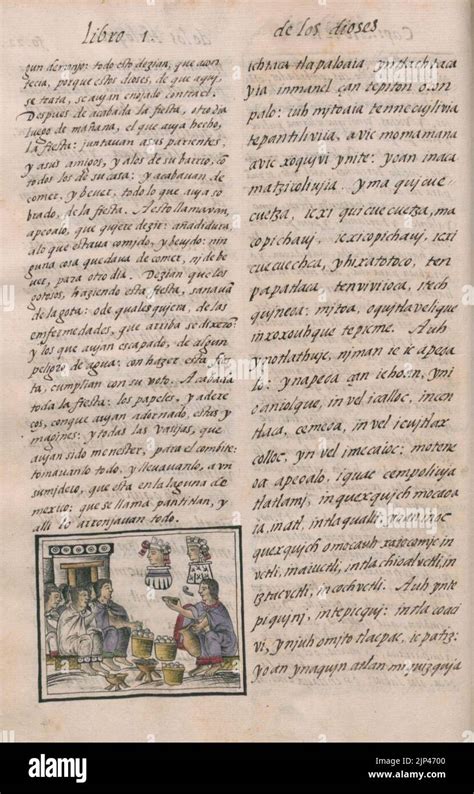 libro 1.
de los dioses
gun denojo: todo esto dezian, que acon
tecia, porque estos dioses, de que aqui,
se trata, se auian enojado contra el.
Despues de acabada la fiesta, otro dia
luego de mañana, el que auja hecho,
la fiesta: juntauan a sus parientes,
y a sus amigos, y a los de su barrio, cõ
todos los de su casa: y acabauan de
comer, y beuer, todo lo que auja so
brado, de la fiesta. A esto llamauan,
apeoalo, que qujere dezir: añadidura
a lo que estaua comido, y beujdo: nin
guna cosa quedaua de comer, nj de be
uer, para otro dia. Dezian que los
gotosos, haziendo esta fiesta, sanauã
de la gota: o de quales qujera, de las
enfermedades, que arriba se dixerõ
y los que aujan escapado, de algun
peligro de agua: con hazer esta fies
ta, cumplian con su voto. Acabada
toda la fiesta: los papeles, y adere
ços, con que aujan adornado, estas y
magines: y todas las vasijas, que
aujan sido menester, para el combite:
tomauanlo todo, y lleuauanlo, a vn
sumjdero, que esta en la laguna de
mexico: que se llama pantitlan, y
alli lo arronjauan todo.
ichtaca tlapaloaia, yntlachtaca
yia inmanel çan tepiton onpa
palo: iuh mjtoaia tennecujlivia
tepantilivia, avic momamana
avic xoqujvi ynite: yoan in aca
matzicoliuja. yma qujcue
cuetza, icxi qujcuecuetza, ma
copichauj. icxicopichauj, icxi
cuecuechca, yhixatotoco, ten
papatlaca, tenvivioca, itech
qujneoa: mjtoa, oqujtlavelique
inxoxouhque tepicme. Auh
ynotlathujc, njman ie ic apeoa
lo: ynapeoa çan ie ihoan, yni
caniolque, in vel icalloc, icen
tlaca, cemeoa, in vel itlax
colloc, yn vel imecaioc: motene
oa apeoalo, iquac cempoliuja
tlatlamj, in quexqujch mocaoa
ia, in atl, in tlaqualli: in tlaçaice
quexqujch omocauh xatecomjc in
vctli, in aiuctli, in tlachioalvctli, in
iztacvctli, in cochvctli. Auh ynte
piqujnj, in tepicquj: intla coaci
vi, ynjuh omjto tlacpac, ic patiz:
yoan ynaqujn atlan mjqujzquja